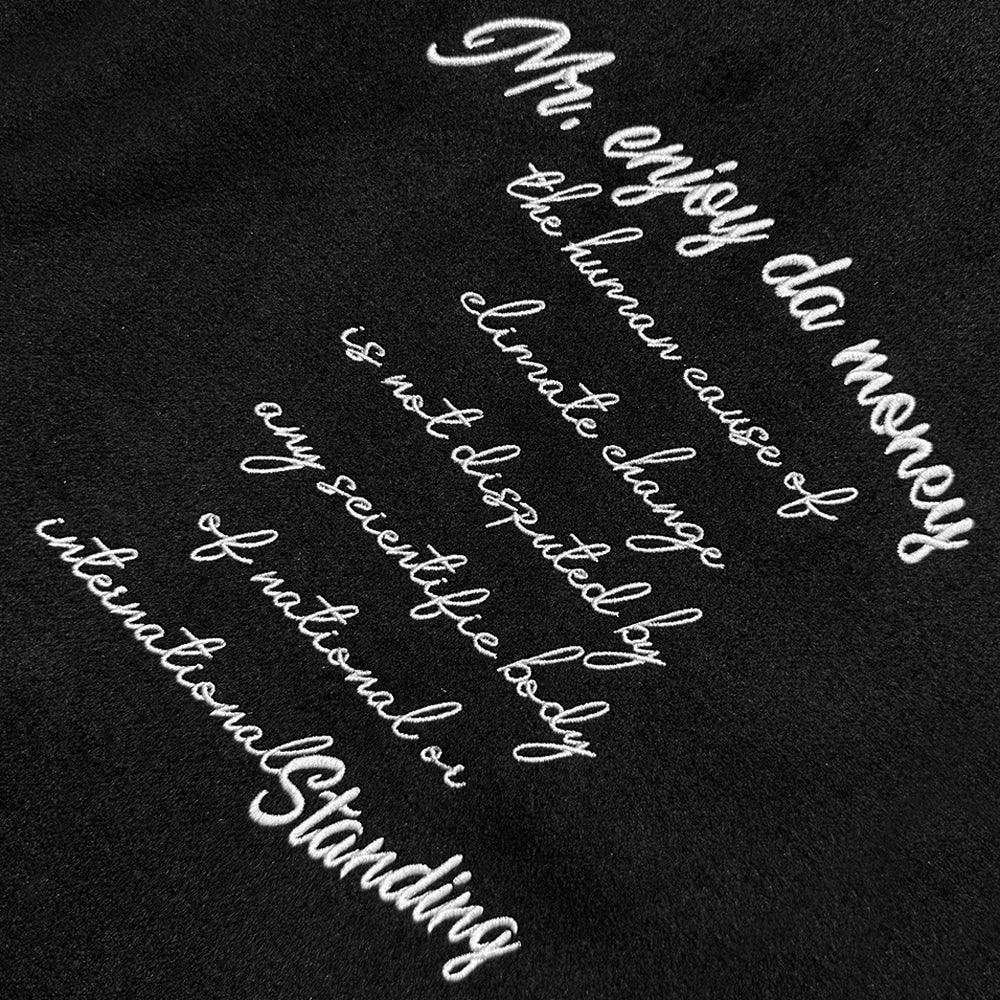 Mr, enjoy da money
the human cause of
climate change
is not disputed by
any scientific body
of national or
internationalStanding